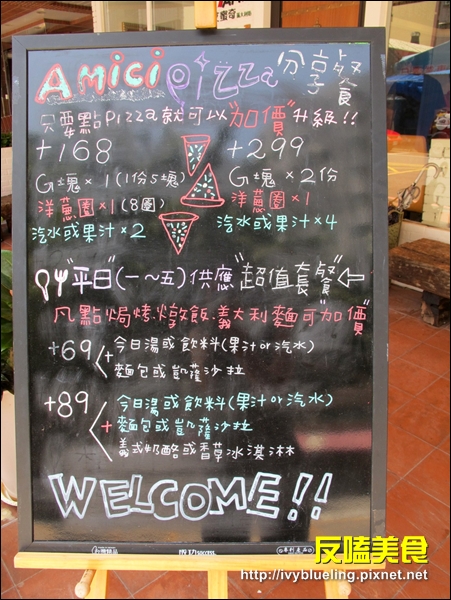 AMICI pizza 分享餐
只要點PIZZA就可以"加價"升級!!
+168
G塊×1(1份5塊)
洋蔥圈×1(8圈)
汽水或果汁×2
+299
G塊×2份
洋蔥圈×1
汽水或果汁×4
"平日"(一~五)供應"超值套餐"
凡點焗烤.燉飯.義大利麵可"加價"
+69
+今日湯或飲料(果汁or汽水)
麵包或凱薩沙拉
+89
今日湯或飲料(果汁or汽水)
+麵包或凱薩沙拉
義式奶酪或香草冰淇淋
WELCOME!!
成功success.
反嗑美食
http://ivyblueling.pixnet.net